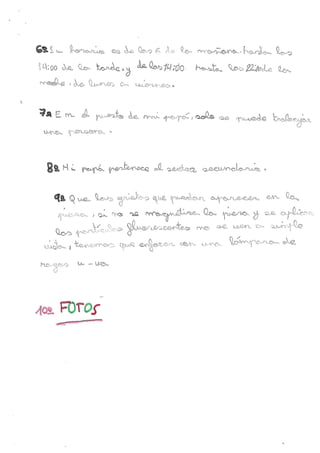 6ª Su horario es de las 6 de la mañana hasta las
14:00 de la tarde, y de las 14:00 hasta las 22:00 de la
noche, de lunes a viernes.
7ª En el puesto de mi papá, solo se puede trabajar
una persona.
8ª Mi papá pertenece al sector secundario.
9ª Que las grietas que puedan aparecer en la
pieza, si no se magnetiza la pieza y se aplican
las partículas fluorescentes no se ven a simple
vista, tenemos que enfocar con una lámpara de
rayos u-va
10ª FOTOS